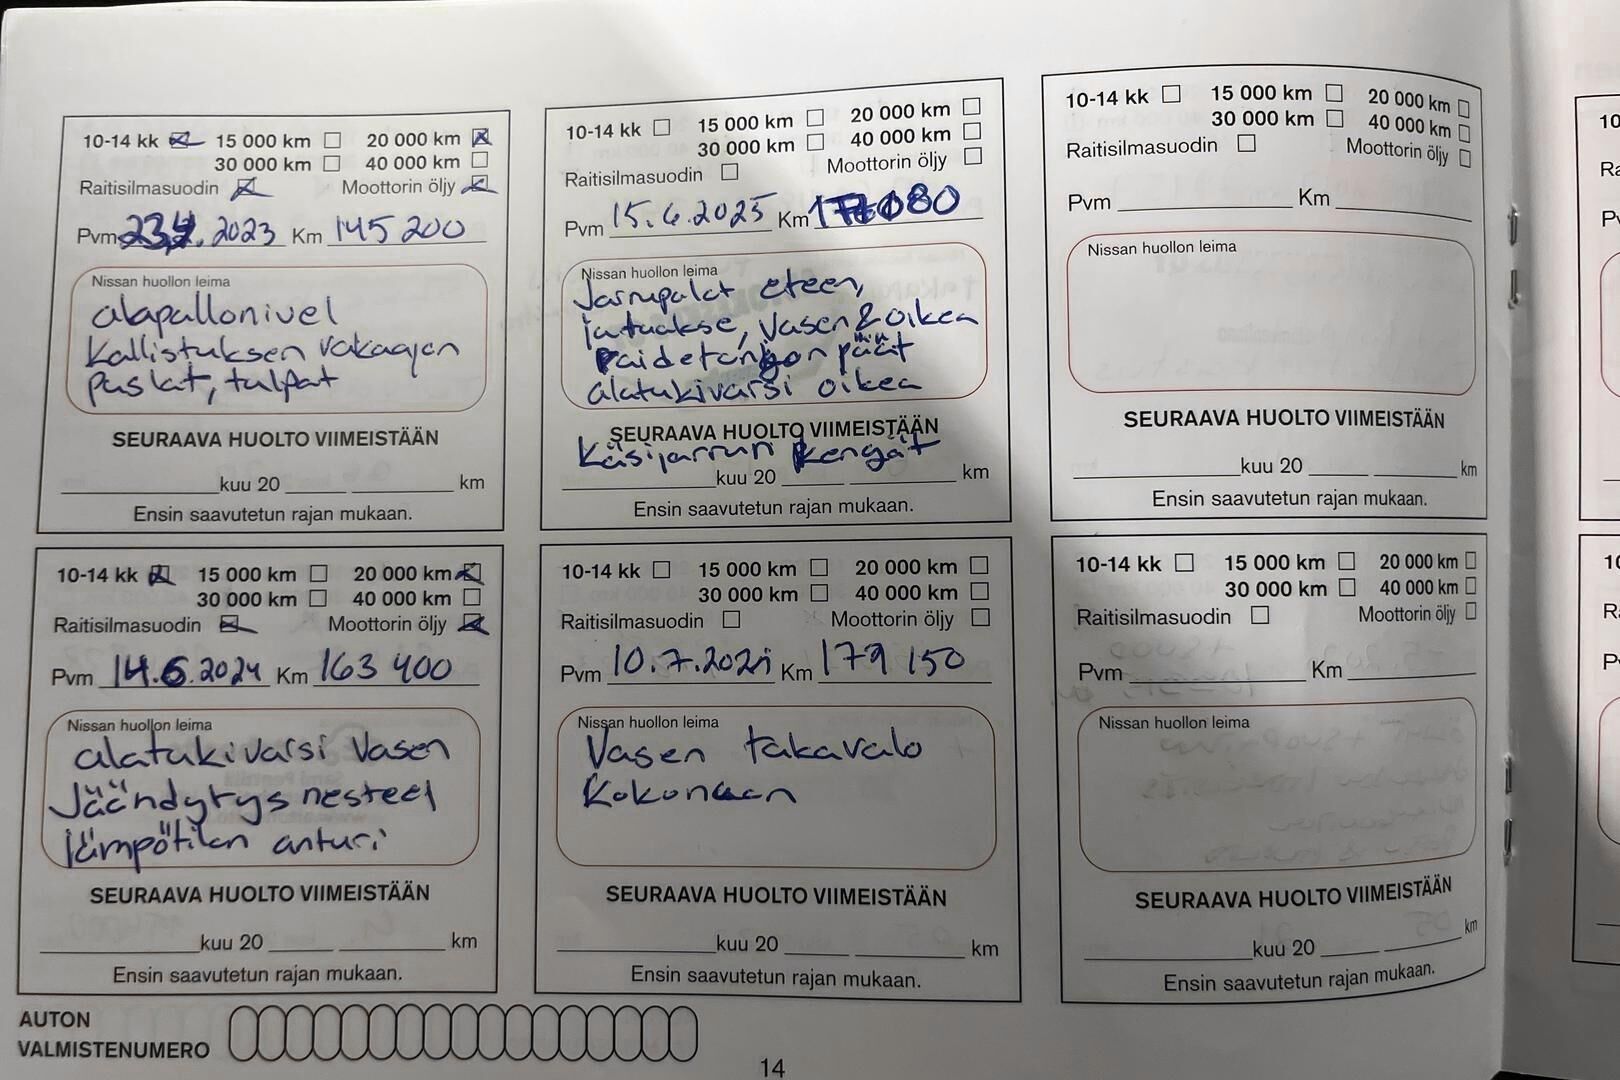 10-14 kk 15 000 km 20 000 km
30 000 km 40 000 km
Raitisilmasuodin Moottorin öljy
Pvm 2023 Km 145 200
Nissan huollon leima
alapallonivel
Kallistuksen vakaajan
puslat, tulpat
SEURAAVA HUOLTO VIIMEISTÄÄN
kuu 20 km
Ensin saavutetun rajan mukaan.
10-14 kk 15 000 km 20 000 km
30 000 km 40 000 km
Raitisilmasuodin Moottorin öljy
Pvm 14.6.2024 Km 163 400
Nissan huollon leima
alatukivarsi Vasen
Jäändytys nesteel
lämpötilan anturi
SEURAAVA HUOLTO VIIMEISTÄÄN
kuu 20 km
Ensin saavutetun rajan mukaan.
10-14 kk 15 000 km 20 000 km
30 000 km 40 000 km
Raitisilmasuodin Moottorin öljy
Pvm 15.6.2025 Km
Nissan huollon leima
Jarrupalat eteen,
Vasen & oikea
Raidetangon päät
alatukivarsi oikea
SEURAAVA HUOLTO VIIMEISTÄÄN
Käsijarrun kengät
kuu 20 km
Ensin saavutetun rajan mukaan.
10-14 kk 15 000 km 20 000 km
30 000 km 40 000 km
Raitisilmasuodin Moottorin öljy
Pvm 10.7. Km 179 150
Nissan huollon leima
Vasen takavalo
Kokonaan
SEURAAVA HUOLTO VIIMEISTÄÄN
kuu 20 km
Ensin saavutetun rajan mukaan.
10-14 kk 15 000 km 20 000 km
30 000 km 40 000 km
Raitisilmasuodin Moottorin öljy
Pvm Km
Nissan huollon leima
SEURAAVA HUOLTO VIIMEISTÄÄN
kuu 20 km
Ensin saavutetun rajan mukaan.
10-14 kk 15 000 km 20 000 km
30 000 km 40 000 km
Raitisilmasuodin Moottorin öljy
Pvm Km
Nissan huollon leima
SEURAAVA HUOLTO VIIMEISTÄÄN
kuu 20 km
Ensin saavutetun rajan mukaan.
AUTON
VALMISTENUMERO
14